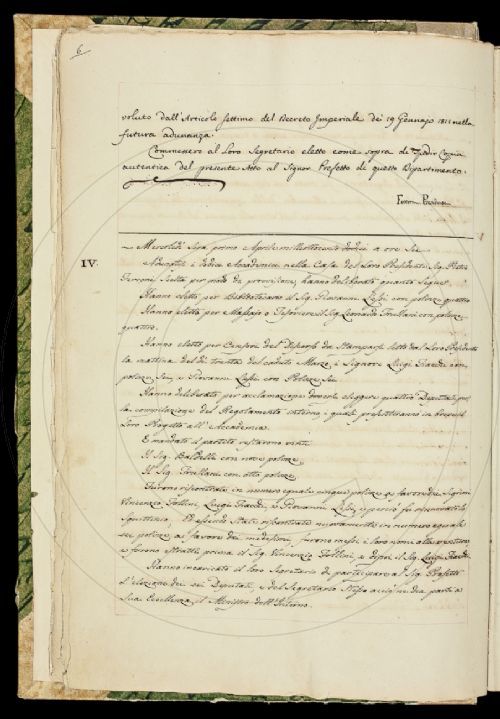 6
voluto dall'Articolo settimo del Decreto Imperiale dei 19 Gennajo 1811 nella
futura adunanza.
Commesero al Loro Segretario eletto come sopra di Copia
autentica del presente Atto al Signor Prefetto di questo Dipartimento.
IV.
Mercoledì primo Aprile milleottocento dodici a ore Sei
Adunatisi i dodici Accademici nella Casa del Loro Presidente Sig. Pietro
Ferroni Scelta per modo di provvisione, hanno deliberato quanto Segue
Hanno eletto per Bibliotecario il Sig. Giovanni Lessi con polizze quattro
Hanno eletto per Massajo e Tesoriere il Sig. Leonardo Frullani con polizze
quattro.
Hanno eletto per Censori del discorso da Stamparsi letto dal Loro Presidente
la mattina del dì trenta del caduto Marzo i Signori Luigi Fiacchi con
polizze Sei, e Giovanni Lessi con Polizze Sei.
Hanno deliberato per acclamazione doversi eleggere quattro Deputati per
la compilazione del Regolamento interno, i quali presenteranno in
Loro Progetto all'Accademia.
E mandato il partito restarono vinti
Il Sig. Baldelli con nove polizze
Il Sig. Frullani con otto polizze
Furono riscontrate in numero eguale cinque polizze a favore dei Signori
Vincenzio Follini, Luigi Fiacchi, e Giovanni Lessi, e perciò fu rinnovato lo
Squittinio, Ed essendo State riscontrate nuovamente in numero eguale
sei polizze a favore dei medesimi, furono messi i loro nomi alla
e furono estratti prima il Sig. Vincenzio Follini, e dopoi il Sig. Luigi Fiacchi
Hanno incaricato il loro Segretario di partecipare al Sig. Prefetto
l'elezione dei sei Deputati, e del Segretario parte a
Sua Eccellenza il Ministro dell'Interno.